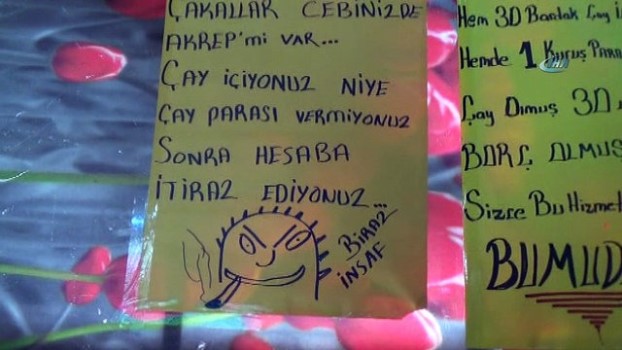 ÇAKALLAR CEBİNİZDE
AKREP'Mİ VAR...
ÇAY İÇİYONUZ NİYE
ÇAY PARASI VERMİYONUZ
SONRA HESABA
İTİRAZ EDİYONUZ...
BİRAZ
İNSAF
Hem 30 Bardak Çay
Hemde 1 Kuruş PARA
Çay Olmuş 30
BORÇ OLMUŞ
Sizce Bu Hizmet
BUMUD